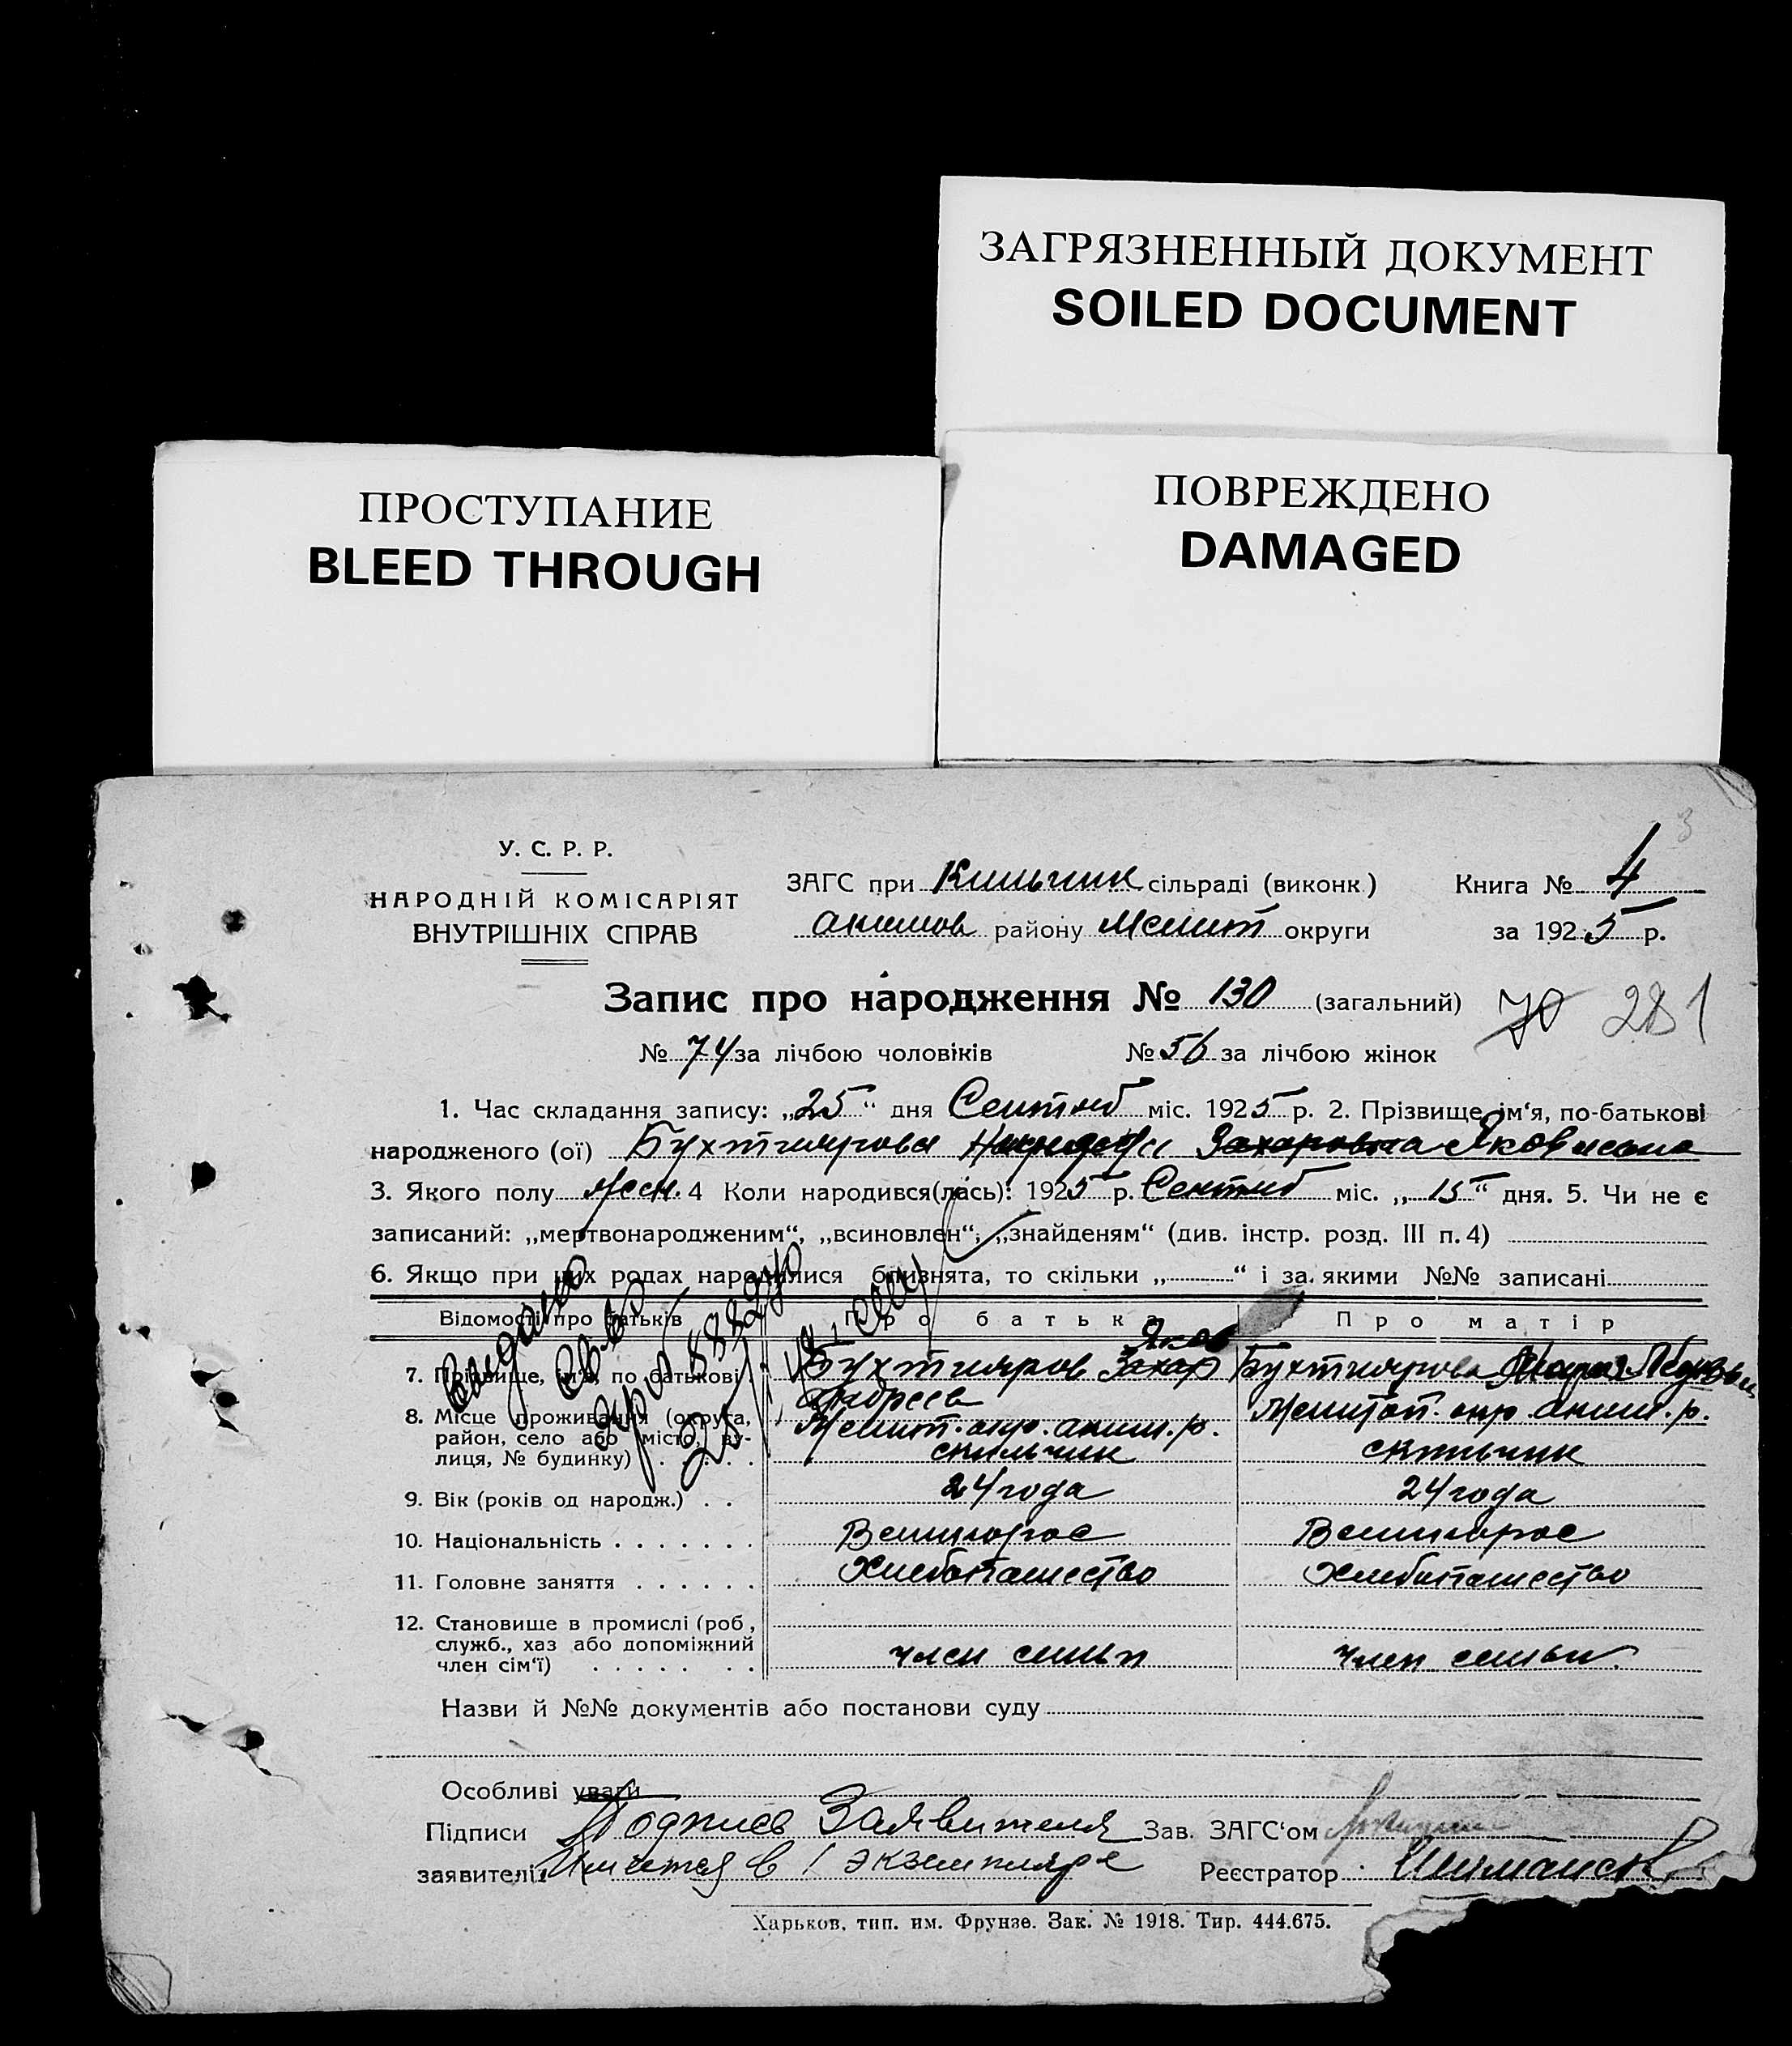 ЗАГРЯЗНЕННЫЙ ДОКУМЕНТ
SOILED DOCUMENT
ПРОСТУПАНИЕ
BLEED THROUGH
ПОВРЕЖДЕНО
DAMAGED
3
У. С. Р. Р.
НАРОДНІЙ КОМІСАРІЯТ
ВНУТРІШНІХ СПРАВ
ЗАГС при сільраді (виконк)
акимов району Мелит округи
Книга № 4
за 1925 р.
Запис про народження № 130 (загальний)
70 281
№ 74 за лічбою чоловіків № 56 за лічбою жінок
1. Час складання запису: „25“ дня Сентяб міс. 1925 р. 2. Прізвище, ім‘я, по-батькові
народженого (ої) Бухтиярова Захаровна Яковлевна
3. Якого полу жен. 4 Коли народився(лась): 1925 р. Сентяб міс. „15“ дня. 5. Чи не є
записаний: „мертвонародженим“, „всиновлен“, „знайденям“ (див. інстр. розд. III п. 4)
6. Якщо при цих родах народилися близнята, то скільки „ “ і за якими №№ записані
Відомості про батьків Про батька Про матір
7. Прізвище, ім‘я, по батькові Бухтияров Захар Яков Андреев Бухтиярова
8. Місце проживання (округа, район, село або місто, вулиця, № будинку) Мелит. окр. аким. р. Мелитоп. окр. аким. р.
9. Вік (років од народж.) 24 года 24 года
10. Національність Великорос Великорос
11. Головне заняття Хлебопашество Хлебопашество
12. Становище в промислі (роб, служб., хаз або допоміжний член сім‘ї) член семьи член семьи.
Видано
Назви й №№ документів або постанови суду
Особливі уваги
Підписи Подпись Заявителя Зав. ЗАГС‘ом
заявителів Имеется в 1 экземпляре Реєстратор
Харьков, тип. им. Фрунзе. Зак. № 1918. Тир. 444.675.